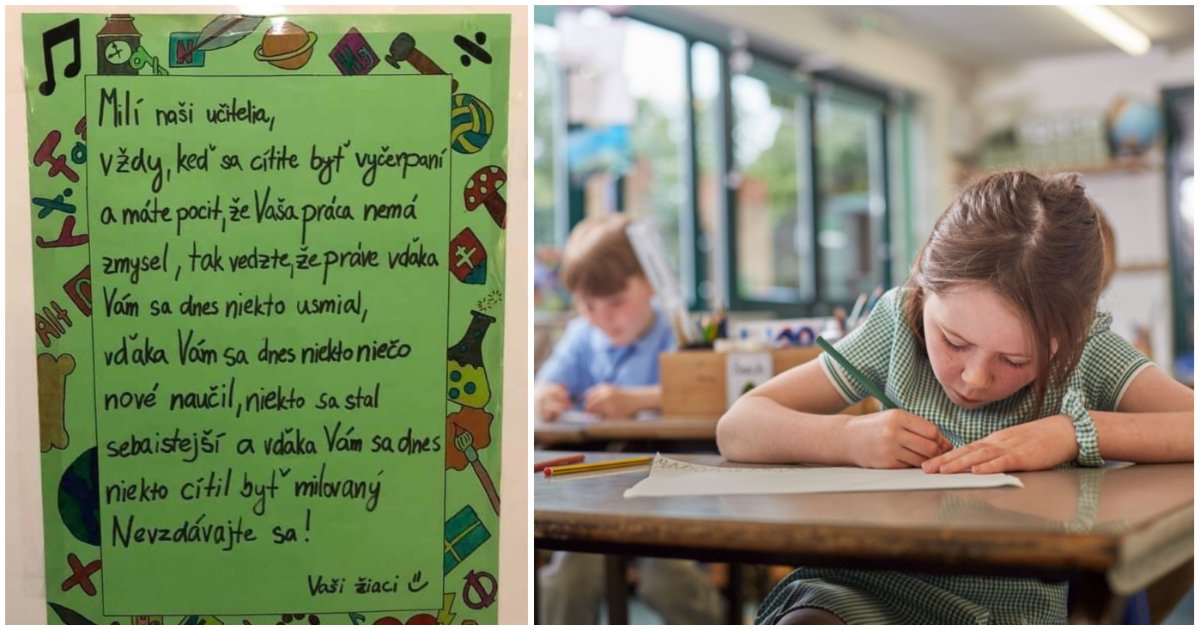 Milí naši učitelia,
vždy, keď sa cítite byť vyčerpaní
a máte pocit, že Vaša práca nemá
zmysel, tak vedzte, že práve vďaka
Vám sa dnes niekto usmial,
vďaka Vám sa dnes niekto niečo
nové naučil, niekto sa stal
sebaistejší a vďaka Vám sa dnes
niekto cítil byť milovaný
Nevzdávajte sa!
Vaši žiaci
Alt